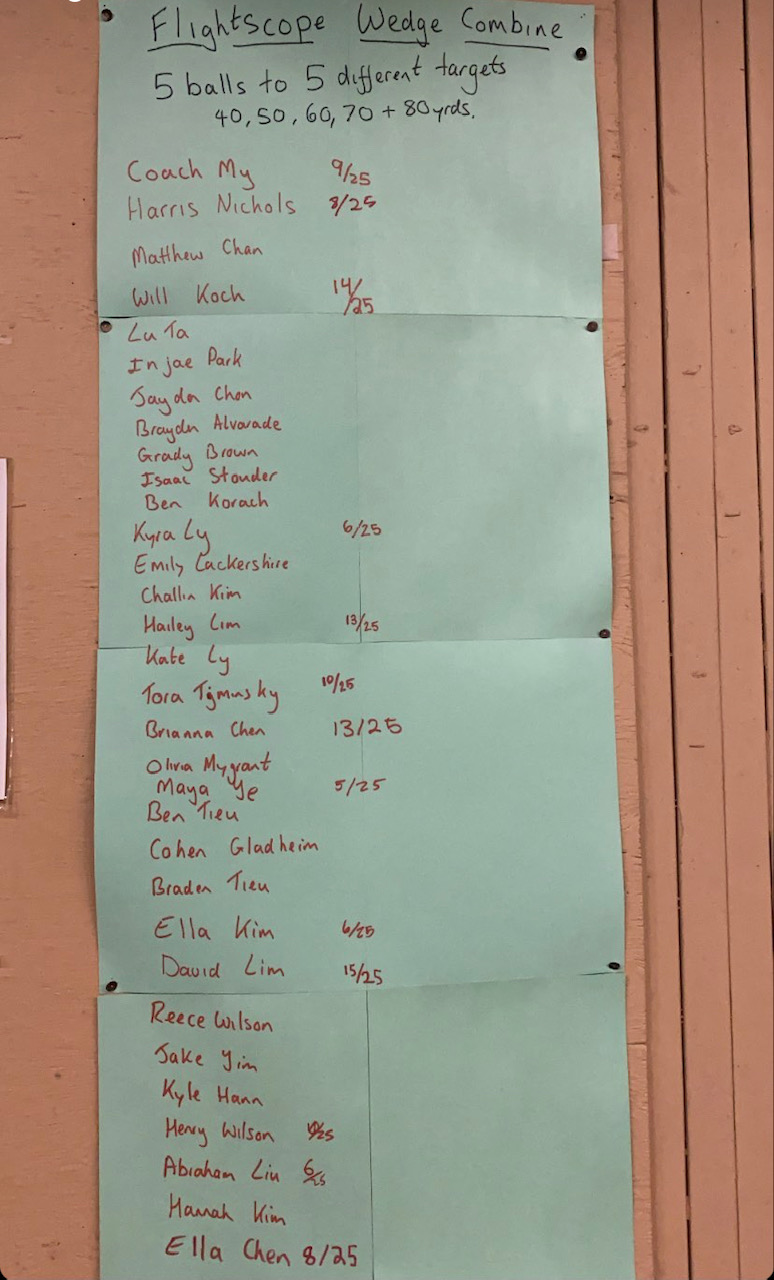 Flightscope Wedge Combine
5 balls to 5 different targets
40, 50, 60, 70 + 80yrds.
Coach My 9/25
Harris Nichols 8/25
Matthew Chan
Will Koch 14/25
Lu Ta
Injae Park
Jaydn Chon
Braydn Alvarade
Grady Brown
Isaac Stouder
Ben Korach
Kyra Ly 6/25
Emily Lackershire
Challin Kim
Hailey Lim 13/25
Kate Ly
Tora 10/25
Brianna Chen 13/25
Olivia Mygrant
Maya Ye 5/25
Ben Tieu
Cohen Gladheim
Braden Tieu
Ella Kim 6/25
David Lim 15/25
Reece Wilson
Jake Yim
Kyle Hann
Henry Wilson
Abraham Liu 6/25
Hannah Kim
Ella Chen 8/25